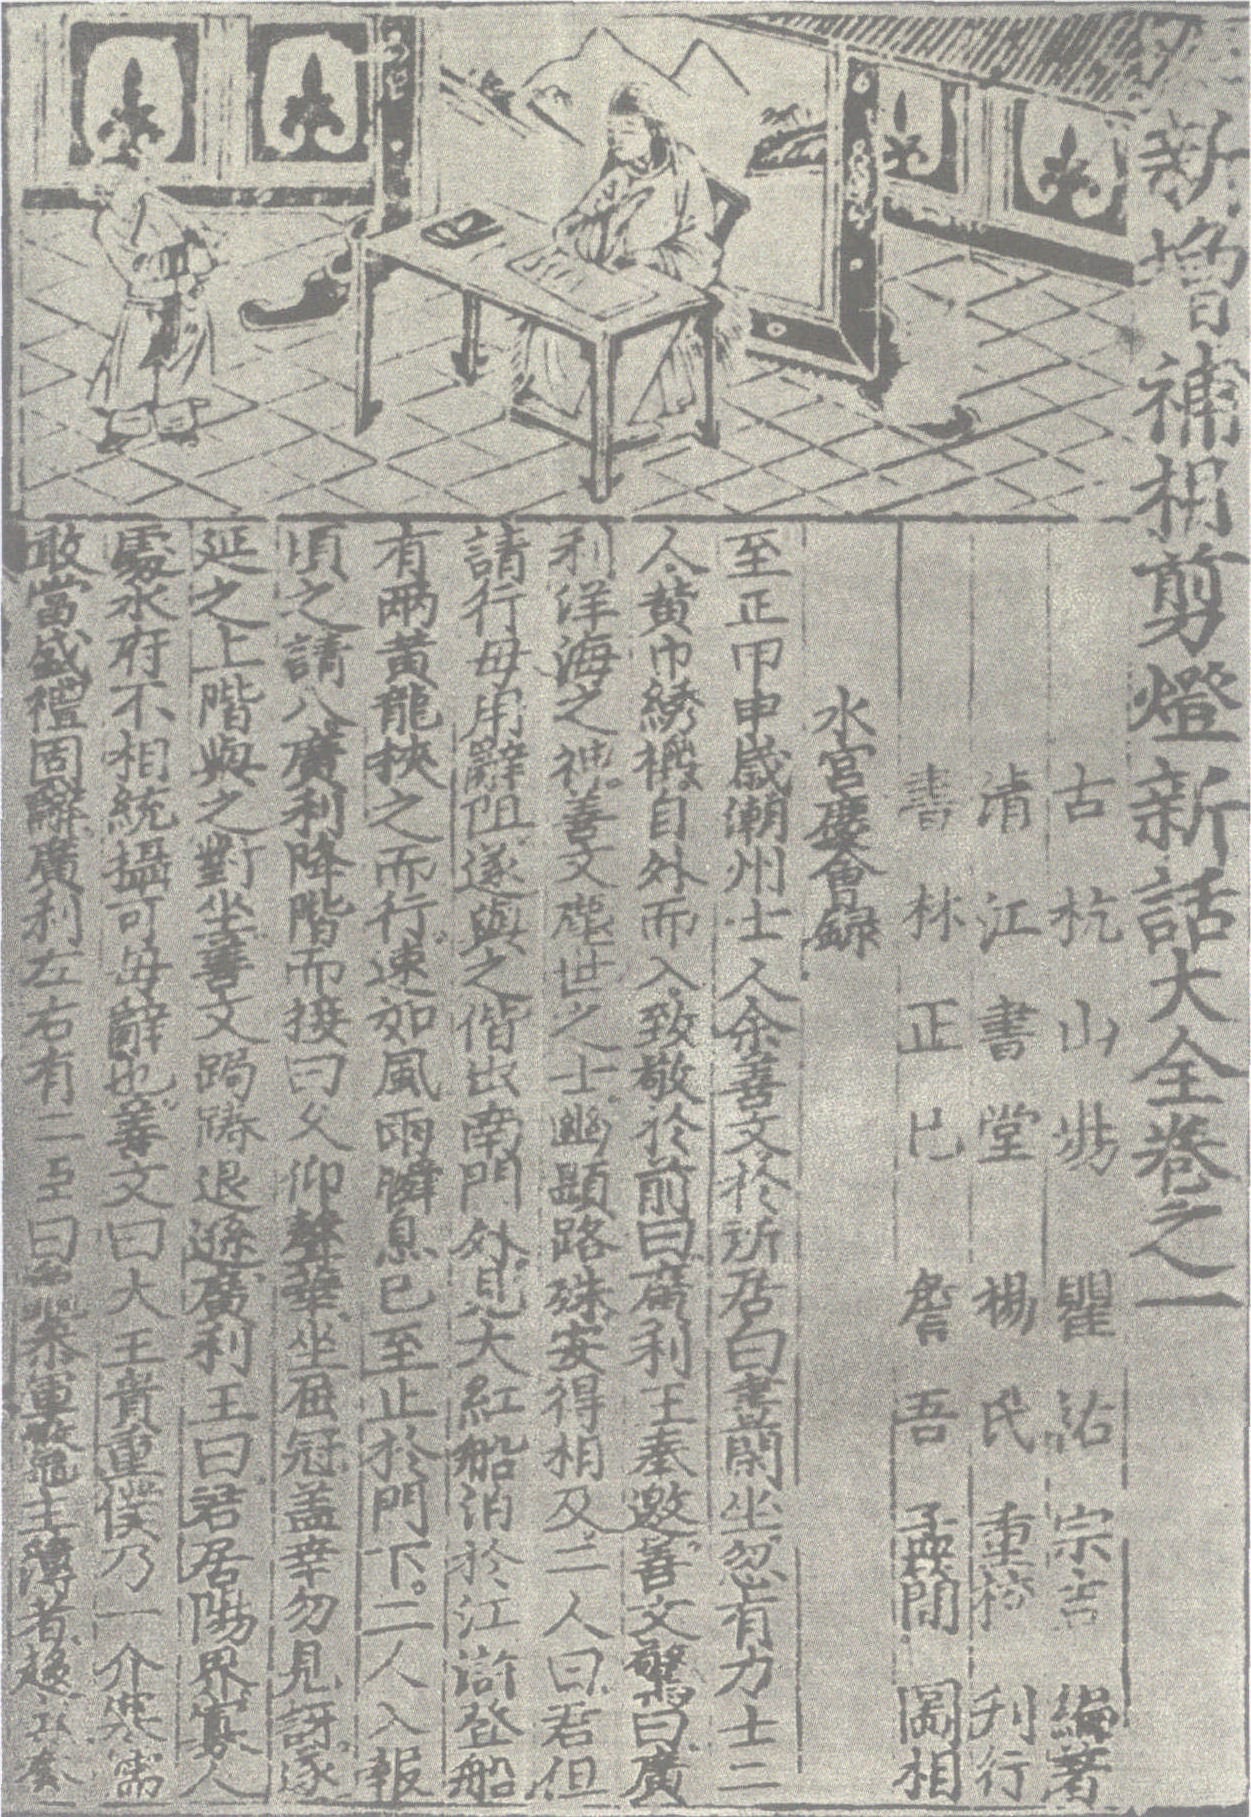 新增補相剪燈新話大全卷之一
古杭山陽瞿佑宗吉編著
清江書堂楊氏重校刋行
書林正己詹吾孟簡圖相
水宮慶會錄
至正甲申歲潮州士人余善文於所居白晝閑坐忽有力士二
人黄巾綉襖自外而入致敬於前曰廣利王奉邀善文驚曰廣
利洋海之神善文塵世之士幽顯路殊安得相及二人曰君但
請行毋用辭阻遂與之偕出南門外見大紅船泊於江滸登船
有兩黃龍挾之而行速如風雨瞬息已至止於門下二人入報
頃之請入廣利降階而接曰久仰聲華坐屈冠盖幸勿見訝遂
延之上階與之對坐善文跼蹐退遜廣利王曰君居陽界寡人
處水府不相統攝可毋辭也善文曰大王貴重僕乃一介寒儒
敢當盛禮固辭廣利左右有二臣曰參軍主簿者趨奏